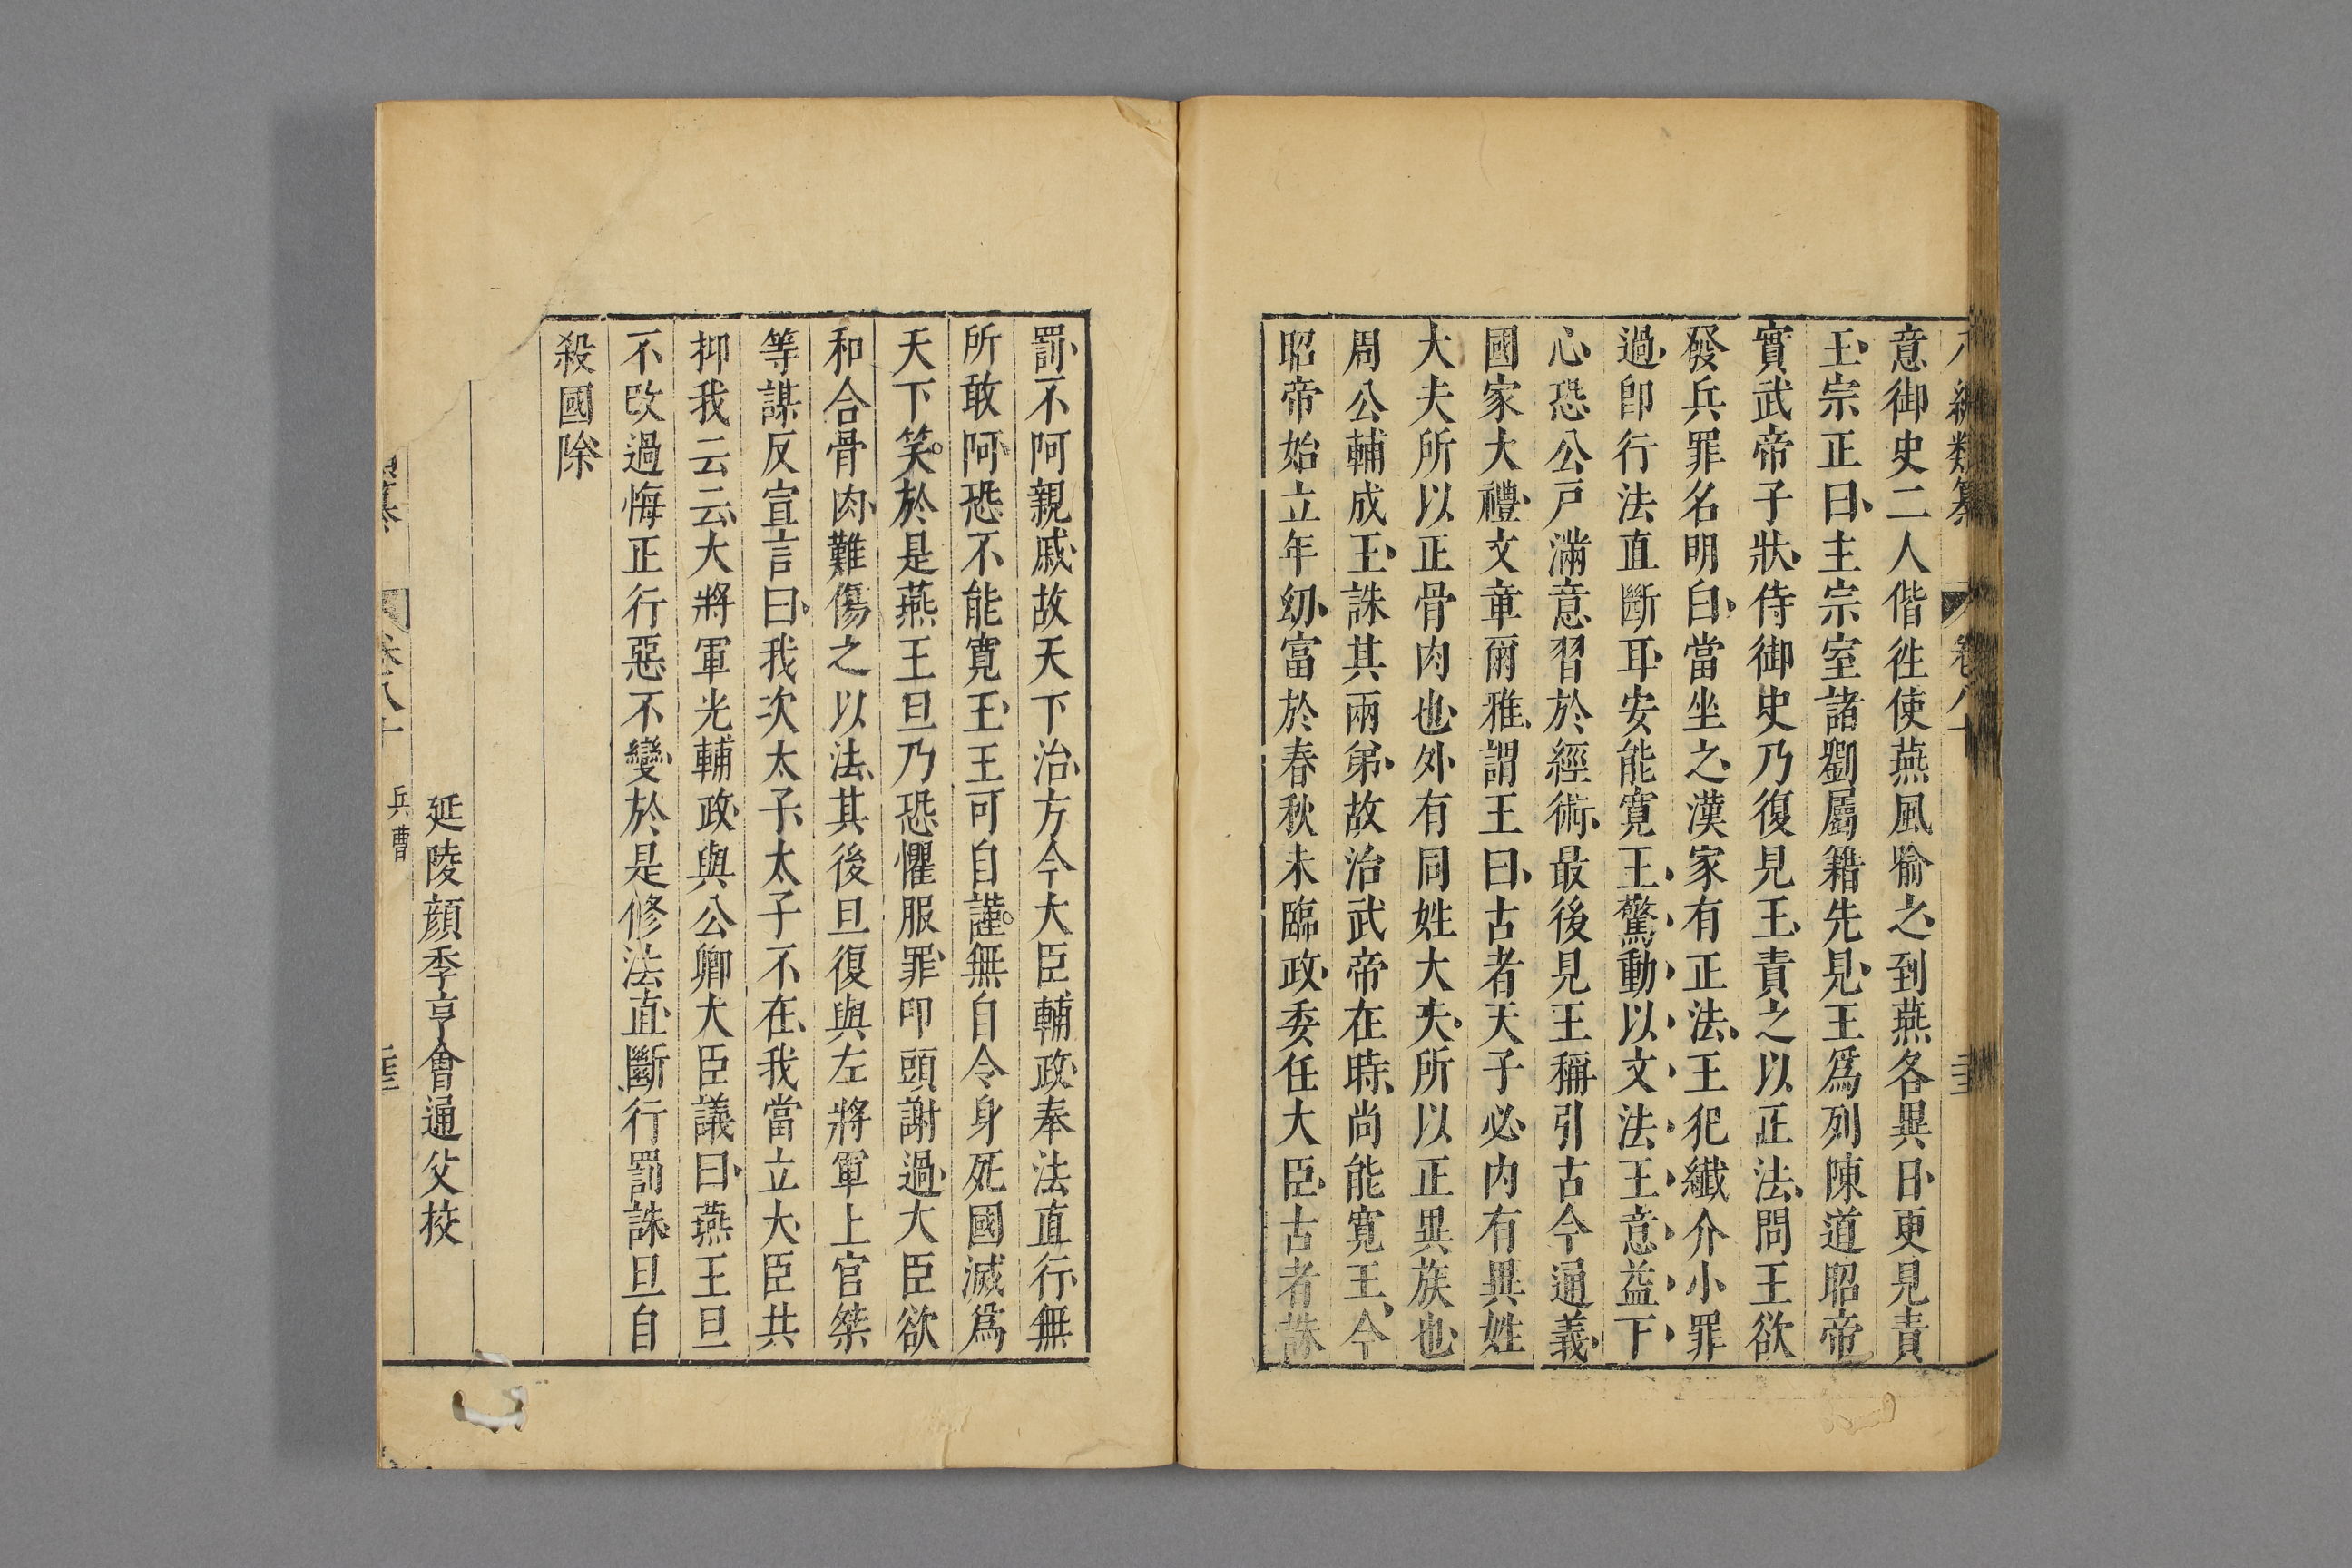 八編類纂 卷八十
意御史二人偕往使燕風喻之到燕各異日更見責
王宗正曰主宗室諸劉屬籍先見王爲列陳道昭帝
實武帝子狀侍御史乃復見王責之以正法問王欲
發兵罪名明白當坐之漢家有正法王犯纖介小罪
過卽行法直斷耳安能寬王驚動以文法王意益下
心恐公戸滿意習於經術最後見王稱引古今通義
國家大禮文章爾雅謂王曰古者天子必內有異姓
大夫所以正骨肉也外有同姓大夫所以正異族也
周公輔成王誅其兩弟故治武帝在時尚能寬王今
昭帝始立年幼富於春秋未臨政委任大臣古者誅
罰不阿親戚故天下治方今大臣輔政奉法直行無
所敢阿恐不能寬王王可自謹無自令身死國滅爲
天下笑於是燕王旦乃恐懼服罪叩頭謝過大臣欲
和合骨肉難傷之以法其後旦復與左將軍上官桀
等謀反宣言曰我次太子太子不在我當立大臣共
抑我云云大將軍光輔政與公卿大臣議曰燕王旦
不改過悔正行惡不變於是修法直斷行罰誅旦自
殺國除
延陵顏季亨會通父校
纂 卷八十 兵曹